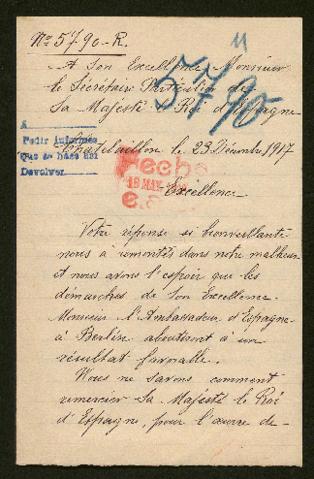 Nº 5790-R.
11
A Son Excellence Monsieur
le Secrétaire Particulier de
Sa Majesté le Roi d'Espagne
5790
Châtelaillon, le 23 Décembre 1917
A
Pedir informes
Que se hace así
Devolver
Fecho
18 MAY
Excellence
Votre réponse si bienveillante
nous a remontés dans notre malheur
et nous avons l'espoir que les
démarches de Son Excellence
Monsieur l'Ambassadeur d'Espagne
à Berlin aboutiront à un
résultat favorable.
Nous ne savons comment
remercier Sa Majesté le Roi
d'Espagne, pour l'œuvre de-